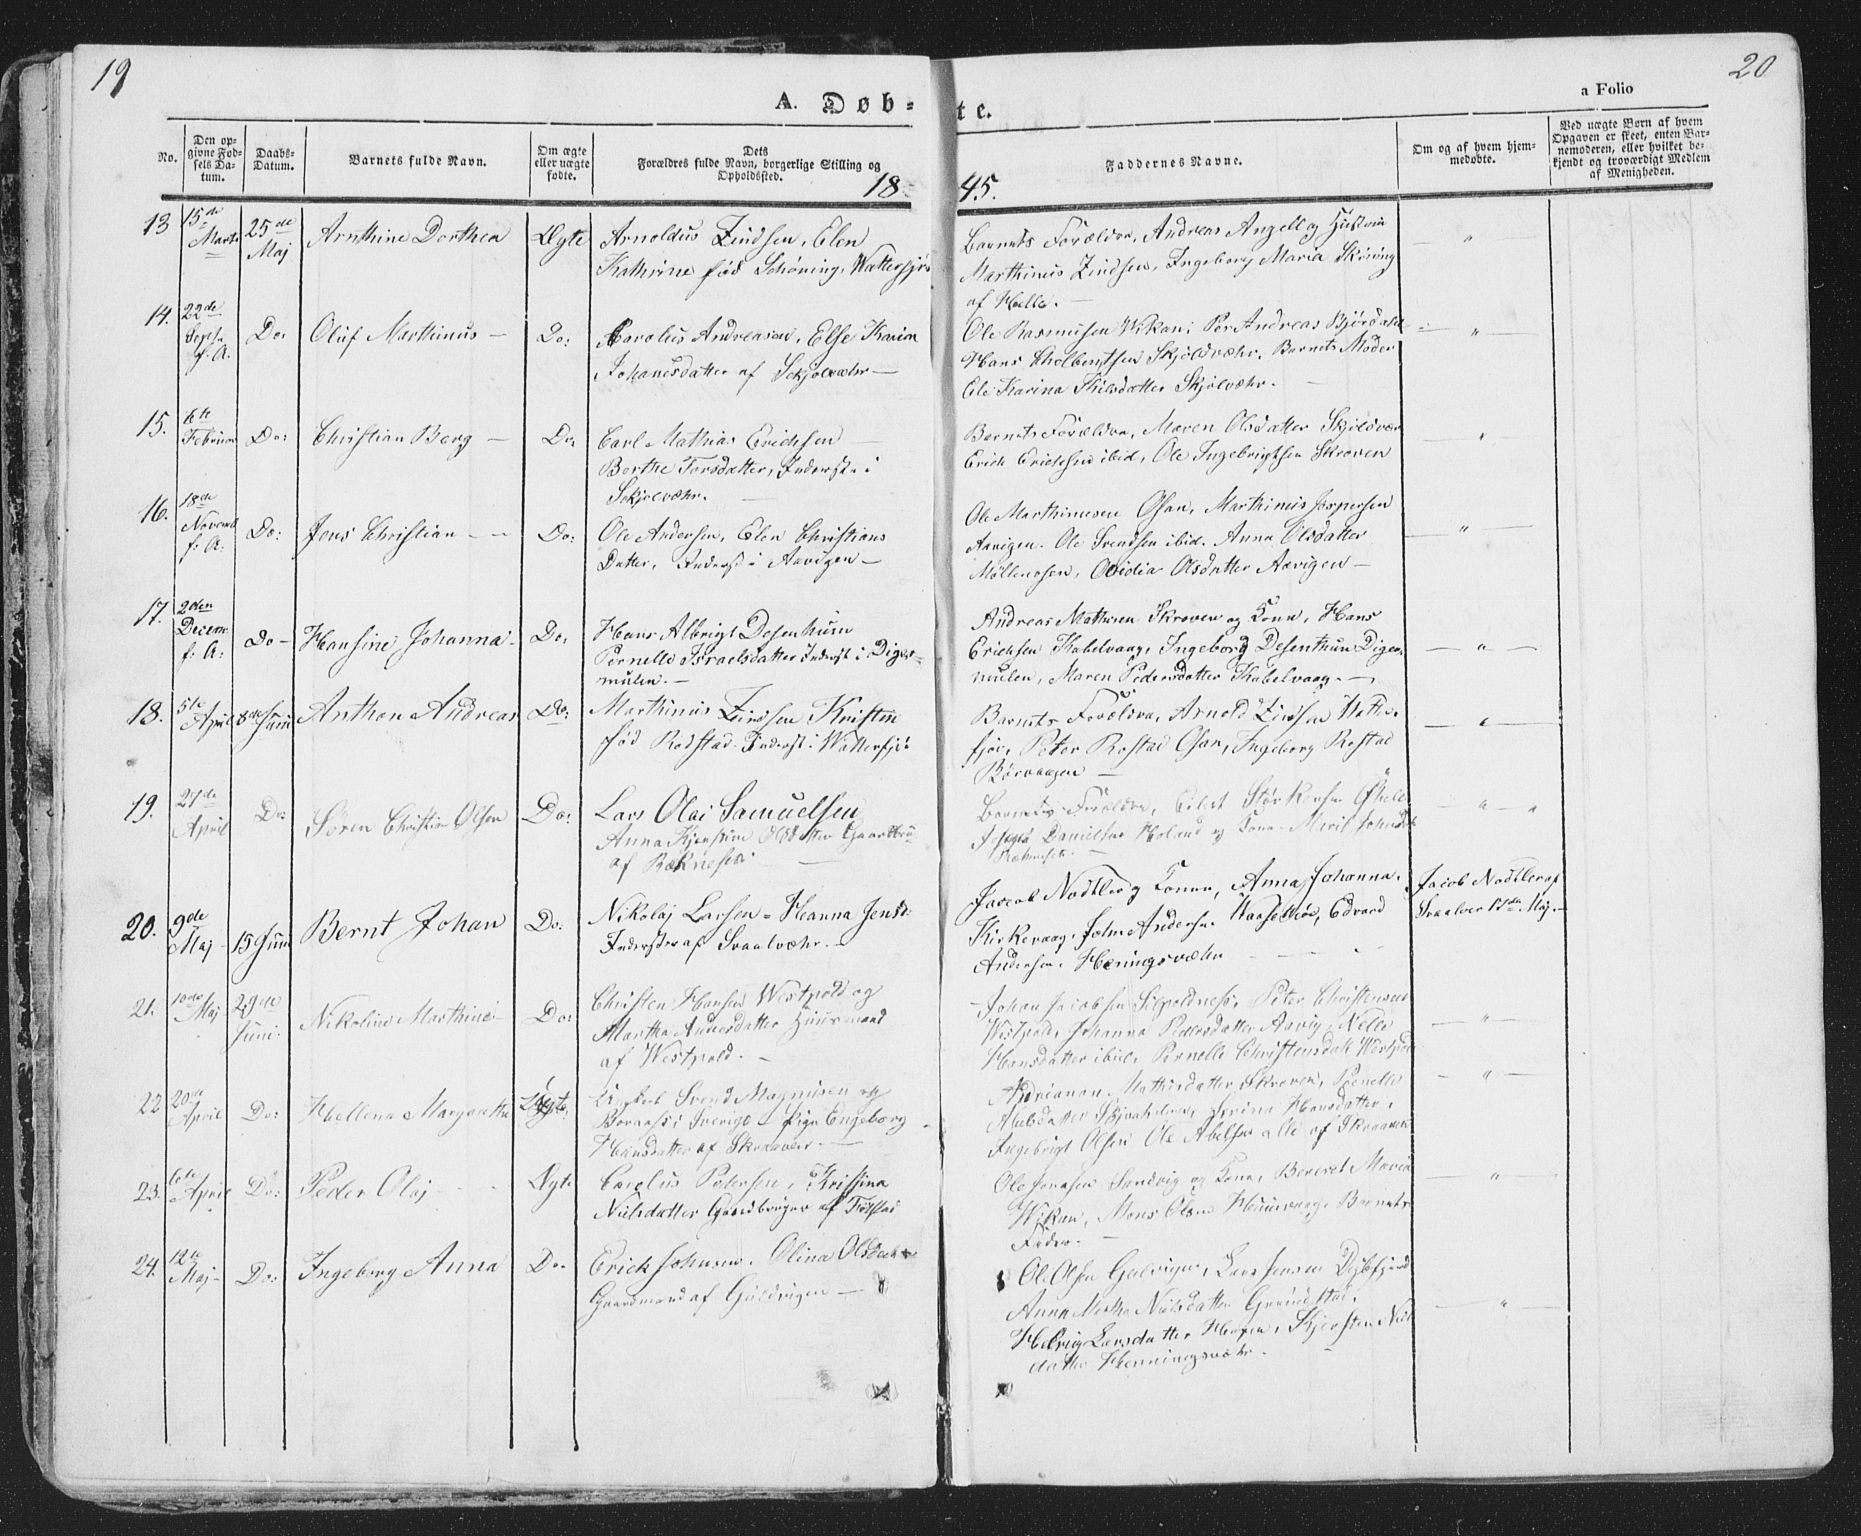 19
20
A. Døb-
te.
a Folio
No.
Den op-
givne Fød-
sels Da-
tum.
Daabs-
Datum.
Barnets fulde Navn.
Om ægte
eller uægte
fødte.
Dets
Forældres fulde Navn, borgerlige Stilling og
Opholdssted.
Faddernes Navne.
Om og af hvem hjem-
medøbte.
Ved uægte Børn af hvem
Opgaven er skeet, enten Bar-
nemoderen, eller hvilket be-
kjendt og troværdigt Medlem
af Menigheden.
18
45.
13
15de
Marts
25de
Maj
Arnthine Dorthea
Ægte
Arnoldus Zindsen, Elen
Kathrine fød Schøning, Watterfjor
Barnets Forældre, Andreas Angell og Hustru
Marthinus Zindsen, Ingeborg Maria
af Helle.
14.
22de
Septr
f. A.
Do:
Oluf Marthinus
Do:
Carolus Andreasen, Else Karin
Johanesdatter af Skjolvæhr
Ole Rasmusen Wikan, Per Andreas Bjørdahl
Hans Skjoldvæhr, Barnets Moder
Ele Karina Skjolvæhr.
15.
6te
Februar
Do:
Christian Berg
Do
Carl Mathias Erichsen
Berthe Torsdatter, Inderst i
Skjolvæhr.
Barnets Forældre, Maren Olsdatter Skjoldvær
Erich Erichsen ibid, Ole Ingebrigtsen Skroven
16.
18de
Novemb
f: A:
Do:
Jens Christian
Do:
Ole Andersen, Elen Christians
Datter, Inderst i Aavigen
Ole Marthinusen Osan, Marthinus Jespersen
Aavigen. Ole Svendsen ibid. Anna Olsdatter
Møllenosen, Ovidia Olsdatter Aavigen
17.
2den
Decem
f: A:
Do
Hansine Johanna
Do:
Hans Albrigt Desenthum
Pernelle Israelsdatter Inderst i Diger-
mulen.
Andreas Mathisen Skroven og Kone, Hans
Erichsen Kabelvaag, Ingeborg Desenthun Diger
mulen, Maren Pedersdatter Kabelvaag.
18.
5te
April
8de Juni
Anthon Andreas
Do:
Marthinus Zindsen Kirsten
fød Rødstad. Inderst i Watterfjor
Barnets Forældre, Arnold Zindsen Watter
fjor, Peter Rostad Osan, Ingeborg Rostad
Rørvaagen
19.
27de
April
Do:
Søren Christian Olsen
Do:
Lars Olai Samuelsen
Anna Olsdatter Gaardbru
af Ræknesse
Barnets Forældre, Størkersen
Danielsen Holand og Kone
20.
9de
Maj
15 Juni
Bernt Johan
Do:
Nikolaj Larsen - Hanna Jensd:
Inderster af Svaalvæhr.
Jacob Nodtler og Konen, Anna Johanna.
Kirkevaag, John Andersen Edvard
Andersen Heningsvæhr
Jacob Nodtler af
Svaalver 17de Maj.
21.
10de Maj
29de
Juni
Nikoline Marthine
Do:
Christen Hansen Westpold og
Martha Andersdatter Huusmand
af Westpold.
Johan Jacobsen Peter Christensen
Westpold, Johanna Pedersdatter Aavig, Nelle
Hansdatter ibid, Pernelle Christensdatt Westpold
22
20de
April
Do:
Hellena Margrethe
Uægte
Ungkarl Svend Magnusen og
i Sverige - Pige Engeborg
Hansdatter af Skraaver
Adrianna Mathisdatter Skroven, Penelle
Abelsdatter Serina Hansdatter,
Ingebrigt Olsen Ole Abelsen alle af Skraaven
23.
6te
April
Do:
Peder Olaj
Ægte
Carolus Petersen, Kirstina
Nielsdatter Gaardbruger af
Ole Jonasen Sandvig og Kone, Bereret Maria
Wikan, Mons Olsen Barnets
Fader.
24.
12te
Maj
Do:
Ingeborg Anna
Do
Erick Johnsen. Olina Olsdatt
Gaardmand af Guldvigen
Ole Olsen Gulvigen, Lars Jensen
Anna Nielsdatter Grundstad.
Larsdatter Kjersten Niel
datter Henningsvæhr.